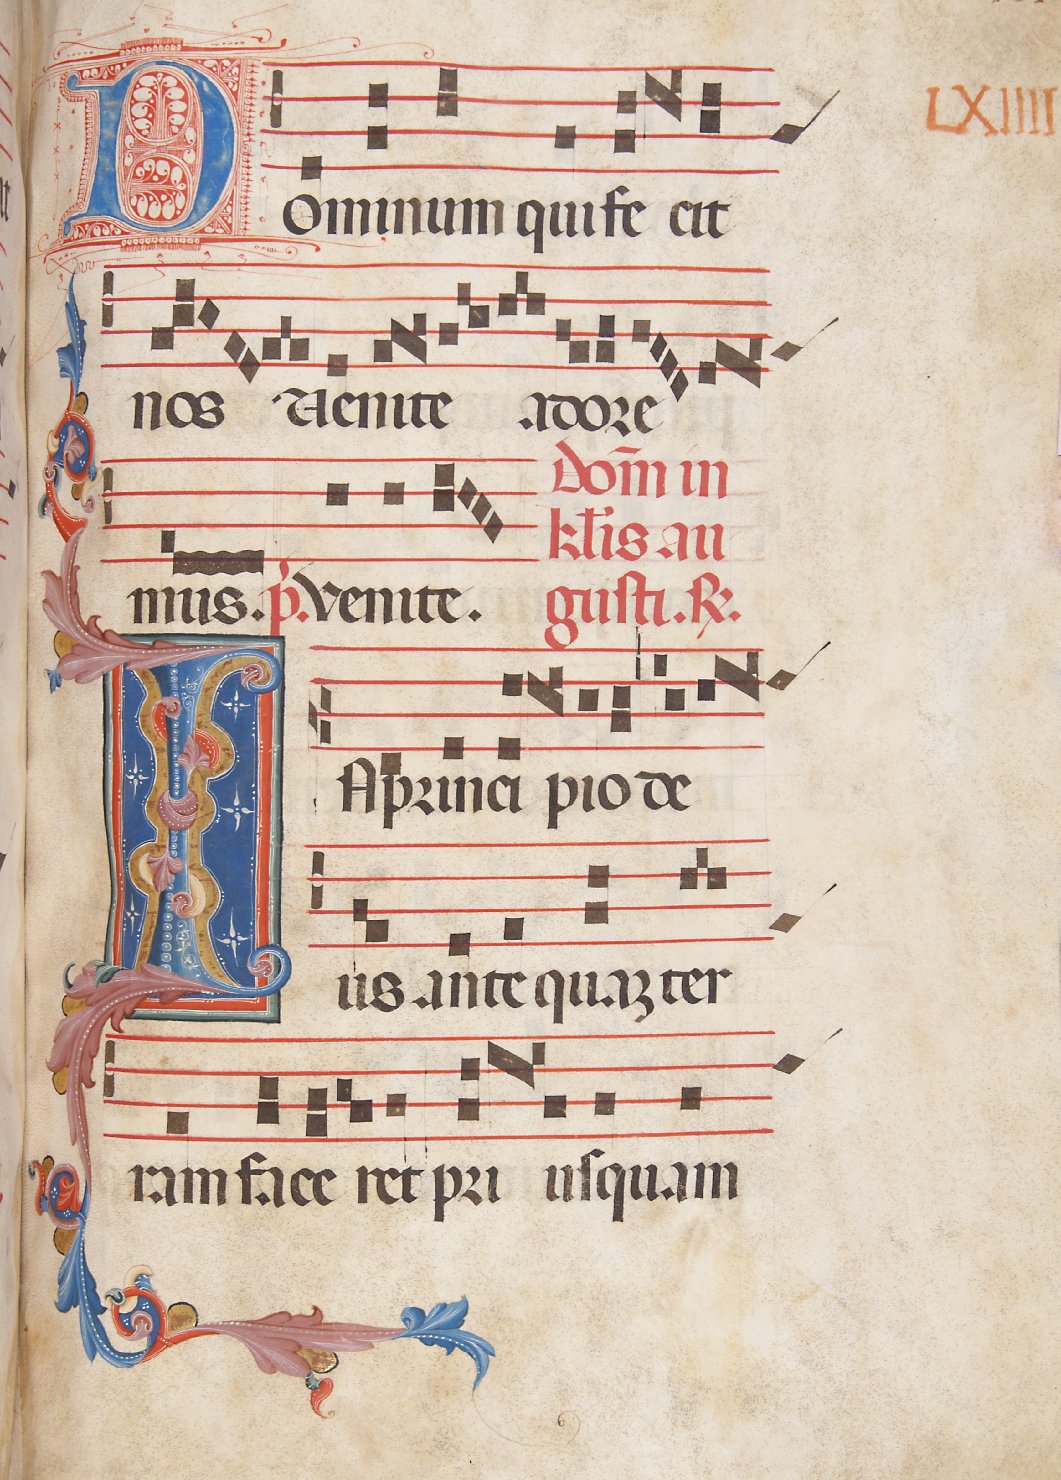 LXIIII
Dominum qui fecit
nos Uenite adore
mus. p̃. Venite.
Dom̄ in
kl̄is au
gusti. ℟.
IN principio de
us antequaꝫ ter
ram faceret pri usquam